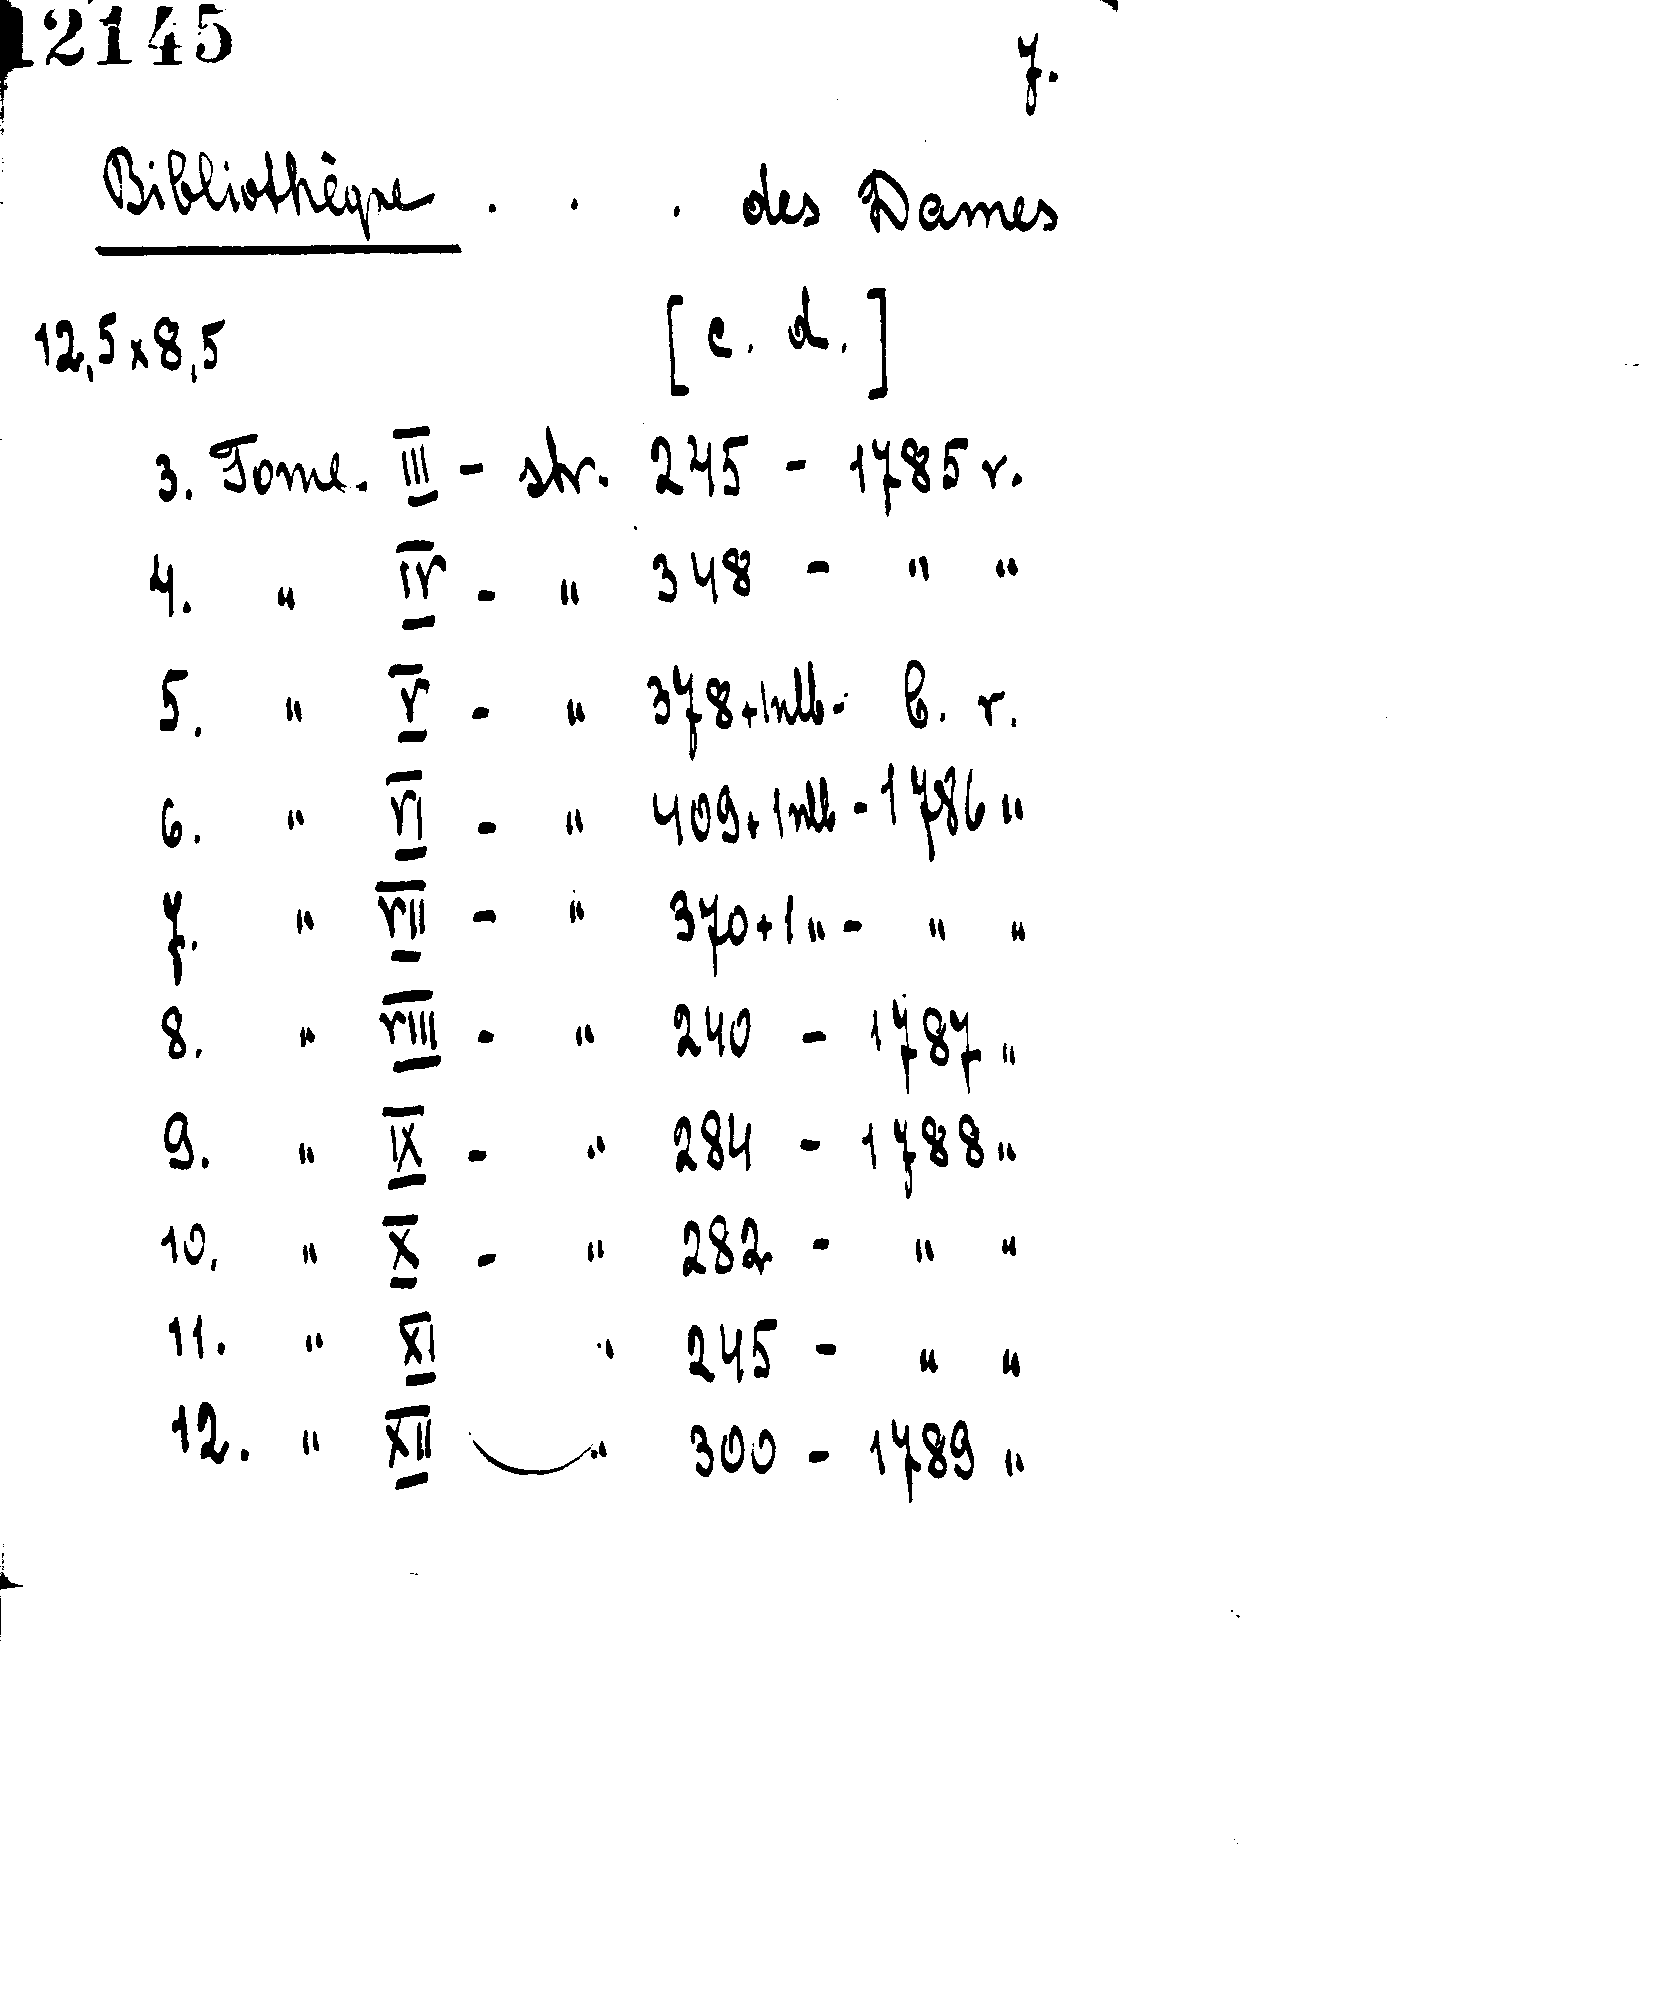 12145
7.
Bibliothèque . . . des Dames
12,5 x 8,5 [c. d.]
3. Tome. III - str. 245 - 1785 r.
4. " IV - " 348 - " "
5. " V - " 378 + 1 nlb - b. r.
6. " VI - " 409 + 1 nlb - 1786 "
7. " VII - " 370 + 1 " - " "
8. " VIII - " 240 - 1787 "
9. " IX - " 284 - 1788 "
10. " X - " 282 - " "
11. " XI " 245 - " "
12. " XII " 300 - 1789 "